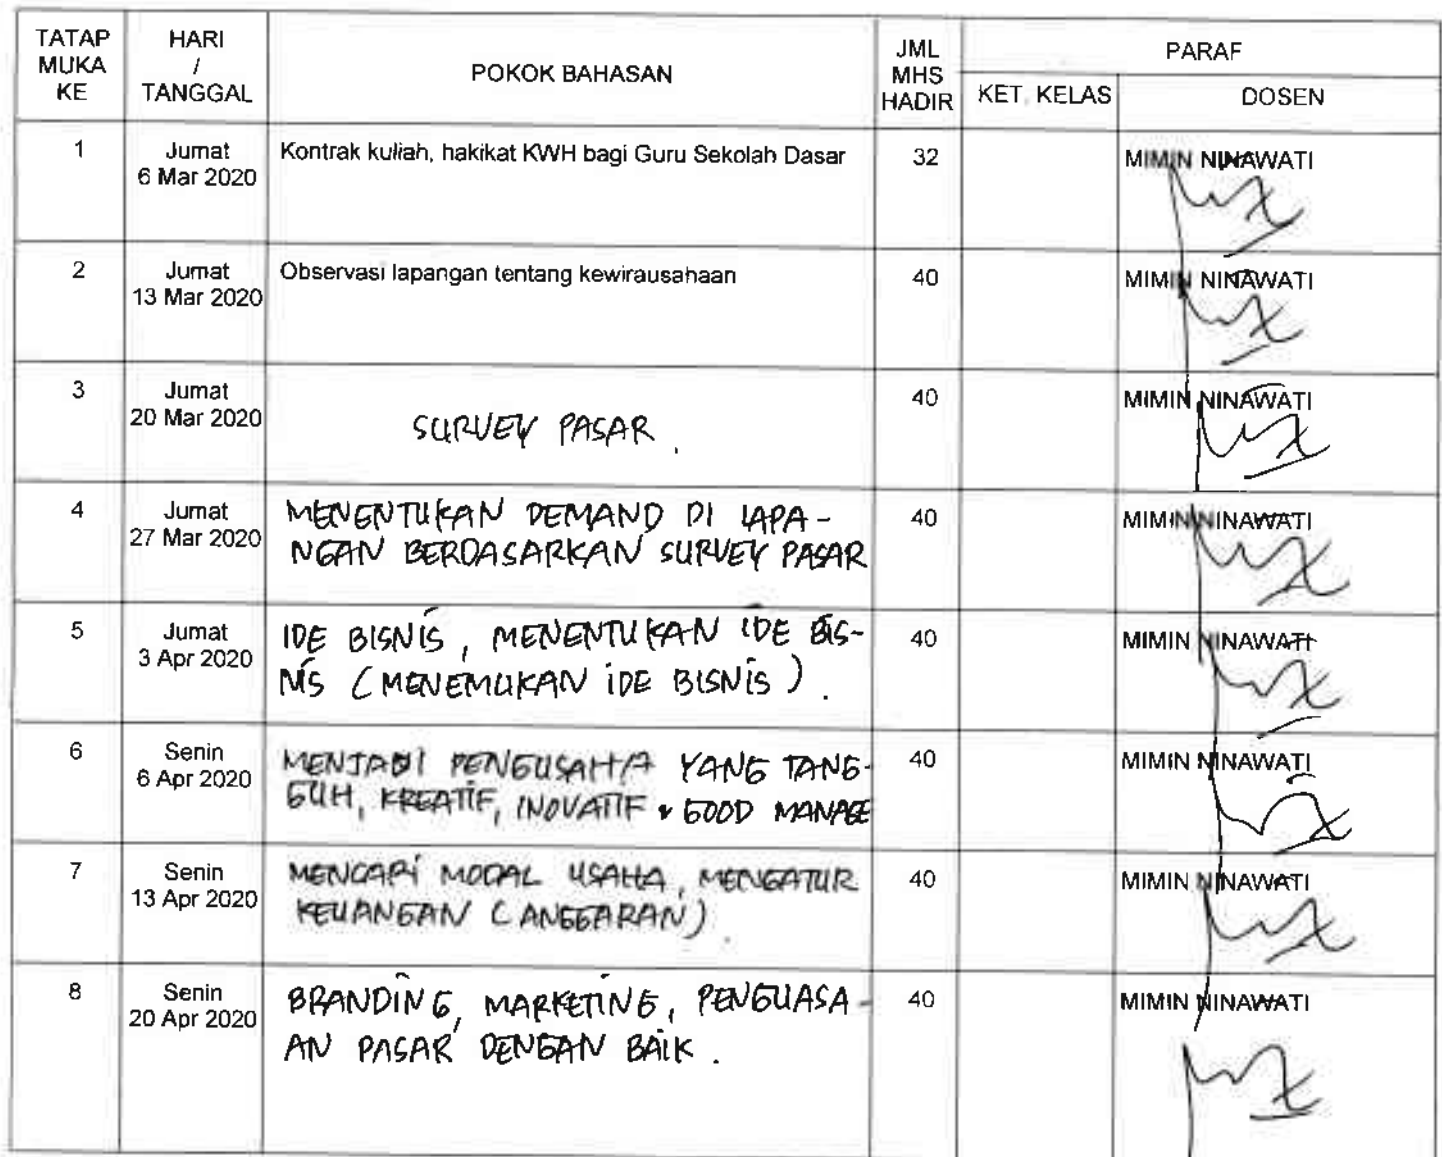 TATAP
MUKA
KE
HARI
/
TANGGAL
POKOK BAHASAN
JML
MHS
HADIR
PARAF
KET. KELAS
DOSEN
1
Jumat
6 Mar 2020
Kontrak kuliah, hakikat KWH bagi Guru Sekolah Dasar
32
MIMIN NINAWATI
2
Jumat
13 Mar 2020
Observasi lapangan tentang kewirausahaan
40
MIMIN NINAWATI
3
Jumat
20 Mar 2020
SURVEY PASAR.
40
MIMIN NINAWATI
4
Jumat
27 Mar 2020
MENENTUKAN DEMAND DI LAPA-
NGAN BERDASARKAN SURVEY PASAR
40
MIMIN NINAWATI
5
Jumat
3 Apr 2020
IDE BISNIS, MENENTUKAN IDE BIS-
NIS (MENEMUKAN IDE BISNIS).
40
MIMIN NINAWATI
6
Senin
6 Apr 2020
MENJADI PENGUSAHA YANG TANG-
GUH, KREATIF, INOVATIF & GOOD MANAGE
40
MIMIN NINAWATI
7
Senin
13 Apr 2020
MENCARI MODAL USAHA, MENGATUR
KEUANGAN (ANGGARAN).
40
MIMIN NINAWATI
8
Senin
20 Apr 2020
BRANDING, MARKETING, PENGUASA-
AN PASAR DENGAN BAIK.
40
MIMIN NINAWATI